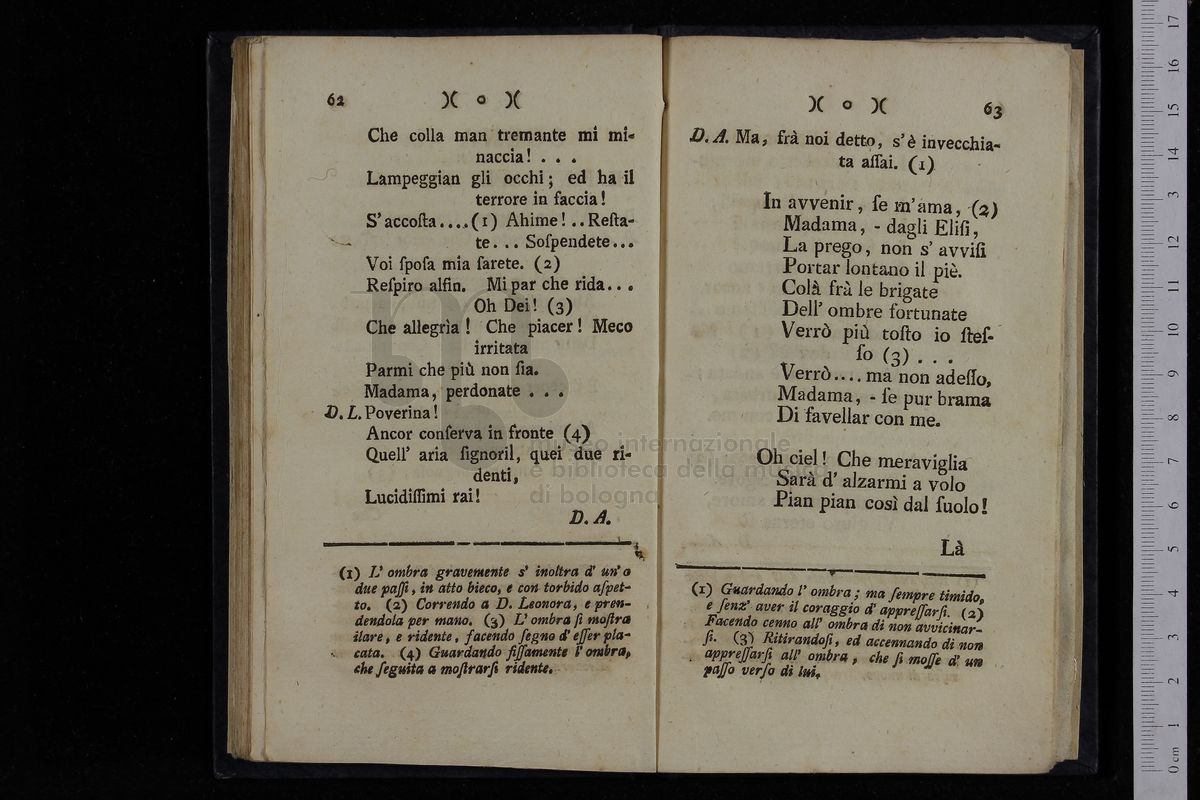 62 )( o )(
Che colla man tremante mi mi-
naccia! . . .
Lampeggian gli occhi; ed ha il
terrore in faccia!
S'accoſta....(1) Ahime!..Reſta-
te... Soſpendete...
Voi ſpoſa mia ſarete. (2)
Reſpiro alfin. Mi par che rida...
Oh Dei! (3)
Che allegrìa! Che piacer! Meco
irritata
Parmi che più non ſia.
Madama, perdonate . . .
D. L. Poverina!
Ancor conſerva in fronte (4)
Quell' aria ſignoril, quei due ri-
denti,
Lucidiſſimi rai!
D. A.
(1) L' ombra gravemente s' inoltra d' un' o
due paſſi, in atto bieco, e con torbido aſpet-
to. (2) Correndo a D. Leonora, e pren-
dendola per mano. (3) L' ombra ſi moſtra
ilare, e ridente, facendo ſegno d' eſſer pla-
cata. (4) Guardando fiſſamente l' ombra,
che ſeguita a moſtrarſi ridente.
)( o )( 63
D. A. Ma, frà noi detto, s'è invecchia-
ta aſſai. (1)
In avvenir, ſe m'ama, (2)
Madama, - dagli Eliſi,
La prego, non s' avviſi
Portar lontano il piè.
Colà frà le brigate
Dell' ombre fortunate
Verrò più toſto io ſteſ-
ſo (3) . . .
Verrò.... ma non adeſſo,
Madama, - ſe pur brama
Di favellar con me.
Oh ciel! Che meraviglia
Sarà d' alzarmi a volo
Pian pian così dal ſuolo!
Là
(1) Guardando l' ombra; ma ſempre timido,
e ſenz' aver il coraggio d' appreſſarſi. (2)
Facendo cenno all' ombra di non avvicinar-
ſi. (3) Ritirandoſi, ed accennando di non
appreſſarſi all' ombra, che ſi moſſe d' un
paſſo verſo di lui.
museo internazionale
e biblioteca della musica
di bologna
0 cm 1 2 3 4 5 6 7 8 9 10 11 12 13 14 15 16 17